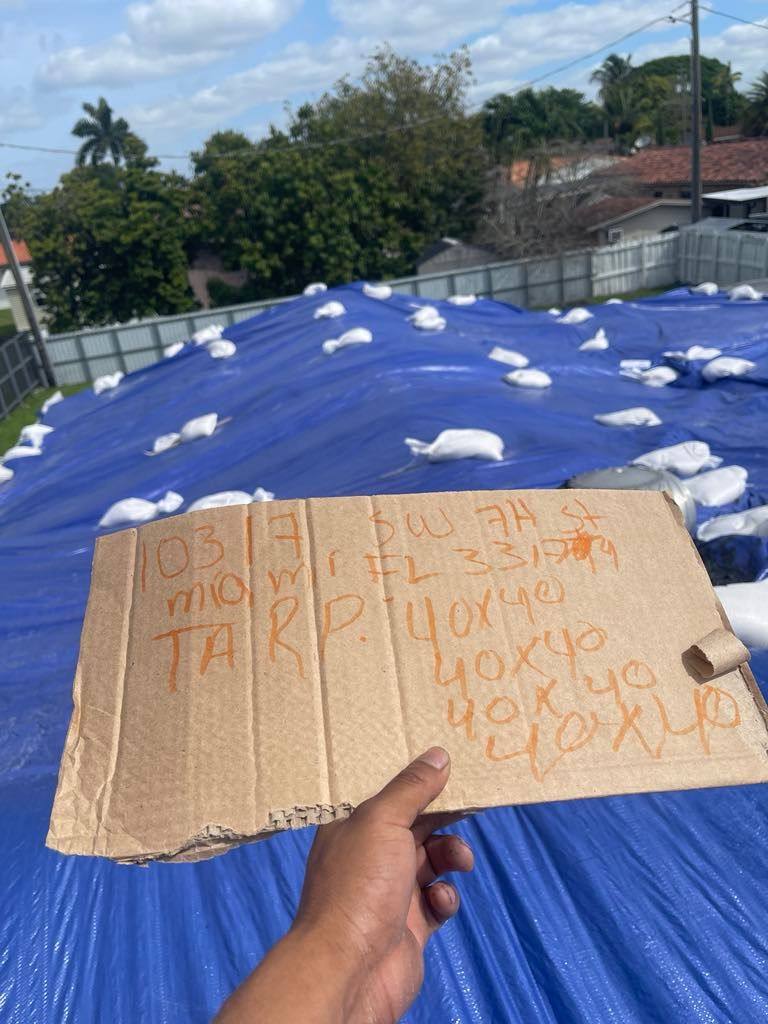 10317 SW 7H St
miami FL 33174
TARP. 40x40
40x40
40x40
40x40